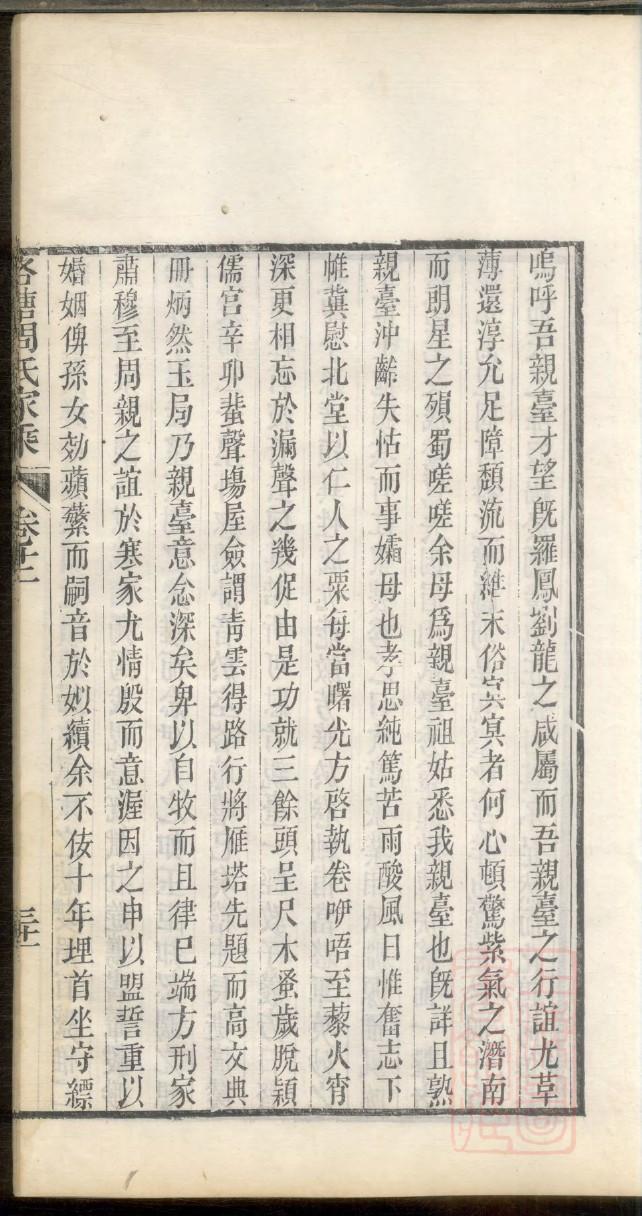 嗚呼吾親臺才望旣羅鳳劉龍之咸屬而吾親臺之行誼尤草
薄還淳允足障頽流而維末俗㝠㝠者何心頓驚紫氣之潛南
而朗星之殞蜀嗟嗟余母爲親臺祖姑悉我親臺也旣詳且熟
親臺沖齡失怙而事孀母也孝思純篤苦雨酸風日惟奮志下
帷冀慰北堂以仁人之粟每當曙光方啓執卷咿唔至藜火宵
深更相忘於漏聲之幾促由是功就三餘頭呈尺木蚤歲脫穎
儒宮辛卯蜚聲塲屋僉謂靑雲得路行將雁塔先題而高文典
冊炳然玉局乃親臺意念深矣卑以自牧而且律已端方刑家
肅穆至周親之誼於寒家尤情殷而意渥因之申以盟誓重以
婚姻俾孫女効蘋蘩而嗣音於姒續余不佞十年埋首坐守縹
周氏家乘
卷十二